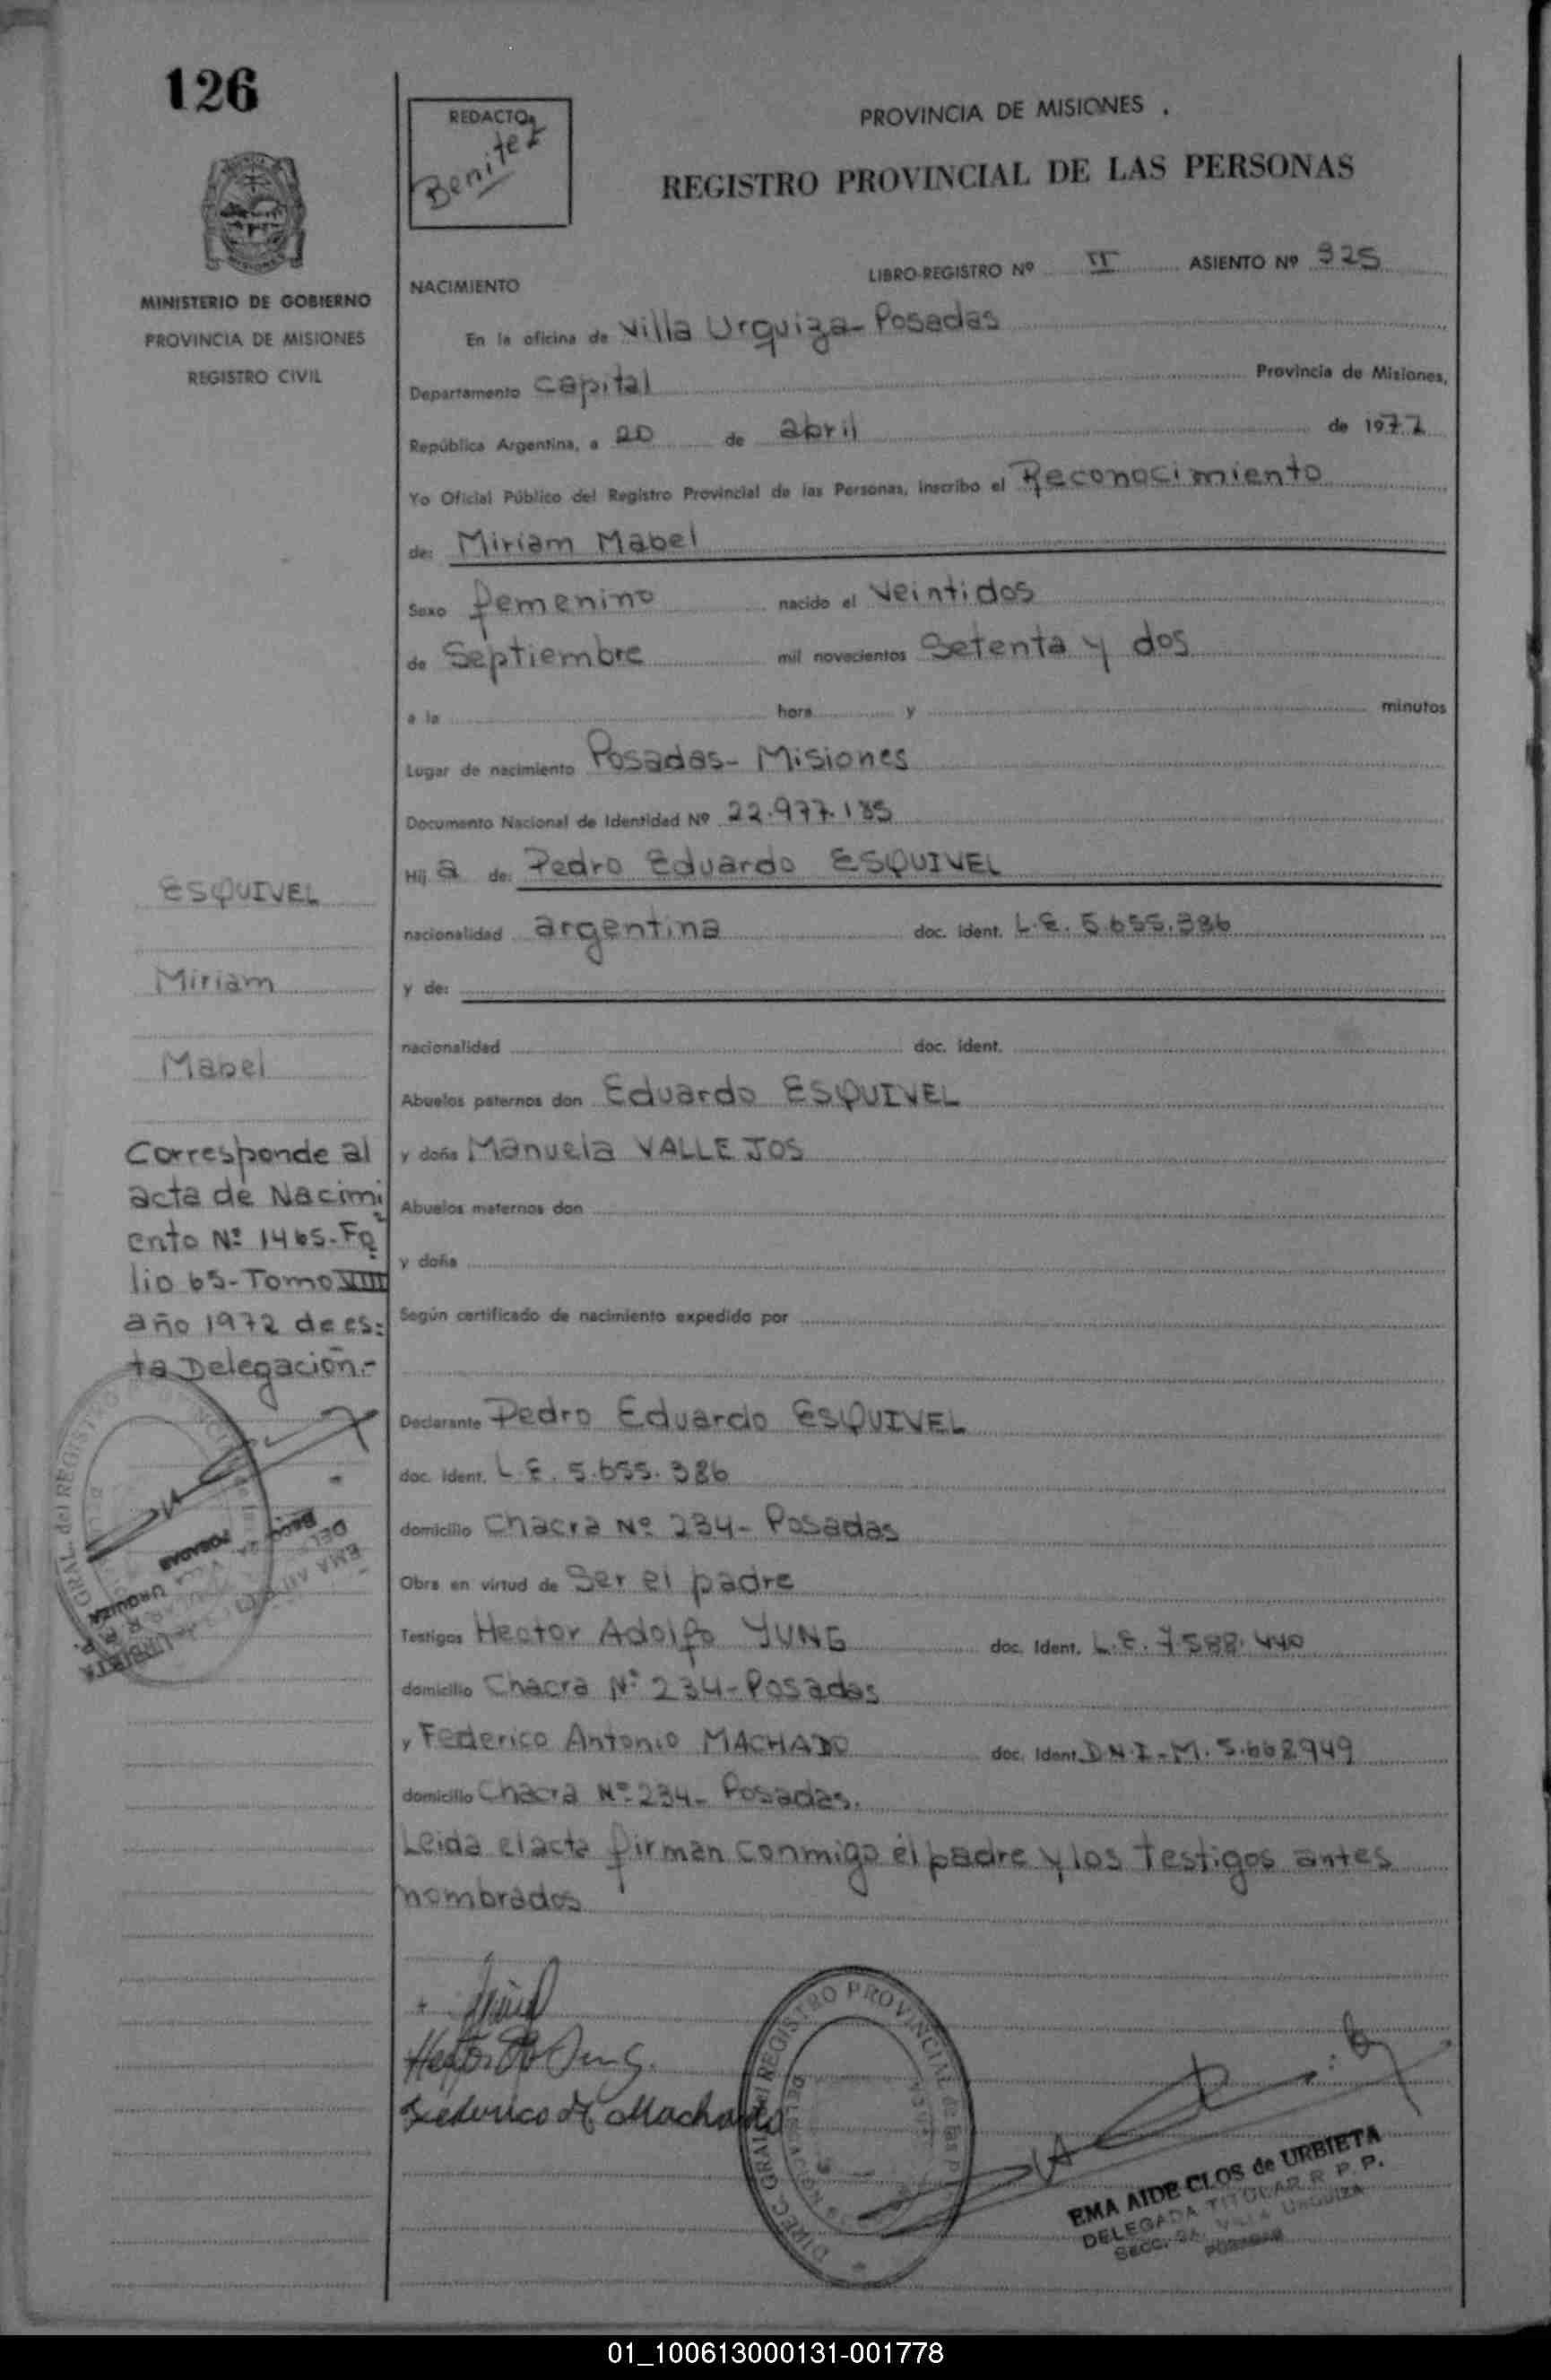 126
REDACTO
Benitez
PROVINCIA DE MISIONES
REGISTRO PROVINCIAL DE LAS PERSONAS
MINISTERIO DE GOBIERNO
PROVINCIA DE MISIONES
REGISTRO CIVIL
LIBRO-REGISTRO Nº II ASIENTO Nº 325
NACIMIENTO
En la oficina de Villa Urquiza - Posadas
Departamento Capital Provincia de Misiones,
República Argentina, a 20 de abril de 1977
Yo Oficial Público del Registro Provincial de las Personas, inscribo el Reconocimiento
de: Miriam Mabel
Sexo femenino nacido el veintidos
de Septiembre mil novecientos Setenta y dos
a la hora y minutos
Lugar de nacimiento Posadas - Misiones
Documento Nacional de Identidad Nº 22.977.185
Hij a de: Pedro Eduardo ESQUIVEL
nacionalidad argentina doc. ident. L.E. 5.655.386
y de:
nacionalidad doc. ident.
Abuelos paternos don Eduardo ESQUIVEL
y doña Manuela VALLEJOS
Abuelos maternos don
y doña
Según certificado de nacimiento expedido por
Declarante Pedro Eduardo ESQUIVEL
doc. ident. L.E. 5.655.386
domicilio Chacra Nº 234 - Posadas
Obra en virtud de Ser el padre
Testigos Hector Adolfo YUNG doc. Ident. L.E. 7.588.440
domicilio Chacra Nº 234 - Posadas
y Federico Antonio MACHADO doc. Ident. D.N.I - M. 5.668.949
domicilio Chacra Nº 234 - Posadas.
Leida el acta firman conmigo el padre y los testigos antes
nombrados
ESQUIVEL
Miriam
Mabel
Corresponde al
acta de Nacimi
ento Nº 1465 - Fo
lio 65 - Tomo VIII
año 1972 de es=
ta Delegación.-
GRAL. del REGISTRO
POSADAS
URQUIZA
Federico A Machado
DIREC. GRAL. del REGISTRO PROVINCIAL de las P
EMA AIDE CLOS de URBIETA
DELEGADA TITULAR R. P. P.
SECC. 2A. VILLA URQUIZA
POSADAS
01_100613000131-001778